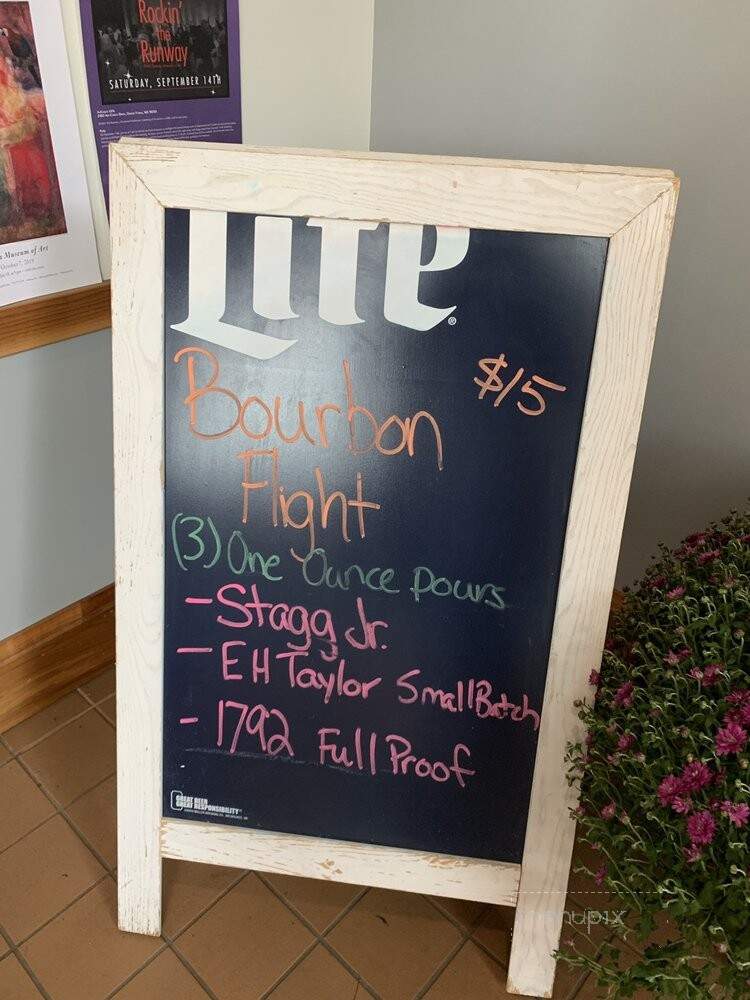 Rockin'
the
Runway
SATURDAY, SEPTEMBER 14TH
Museum of Art
October 7, 2019
Lite®
Bourbon $15
Flight
(3) One Ounce Pours
- Stagg Jr.
- EH Taylor Small Batch
- 1792 Full Proof
GREAT BEER
GREAT RESPONSIBILITY
menupix